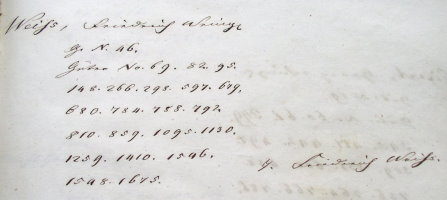 Weiß, Friedrich
G. N. 46.
Güter No. 69. 82. 95.
148. 266. 298. 597. 679.
680. 784. 788. 792.
810. 859. 1095. 1130.
1259. 1410. 1546.
1548. 1675.
Friedrich Weiß.